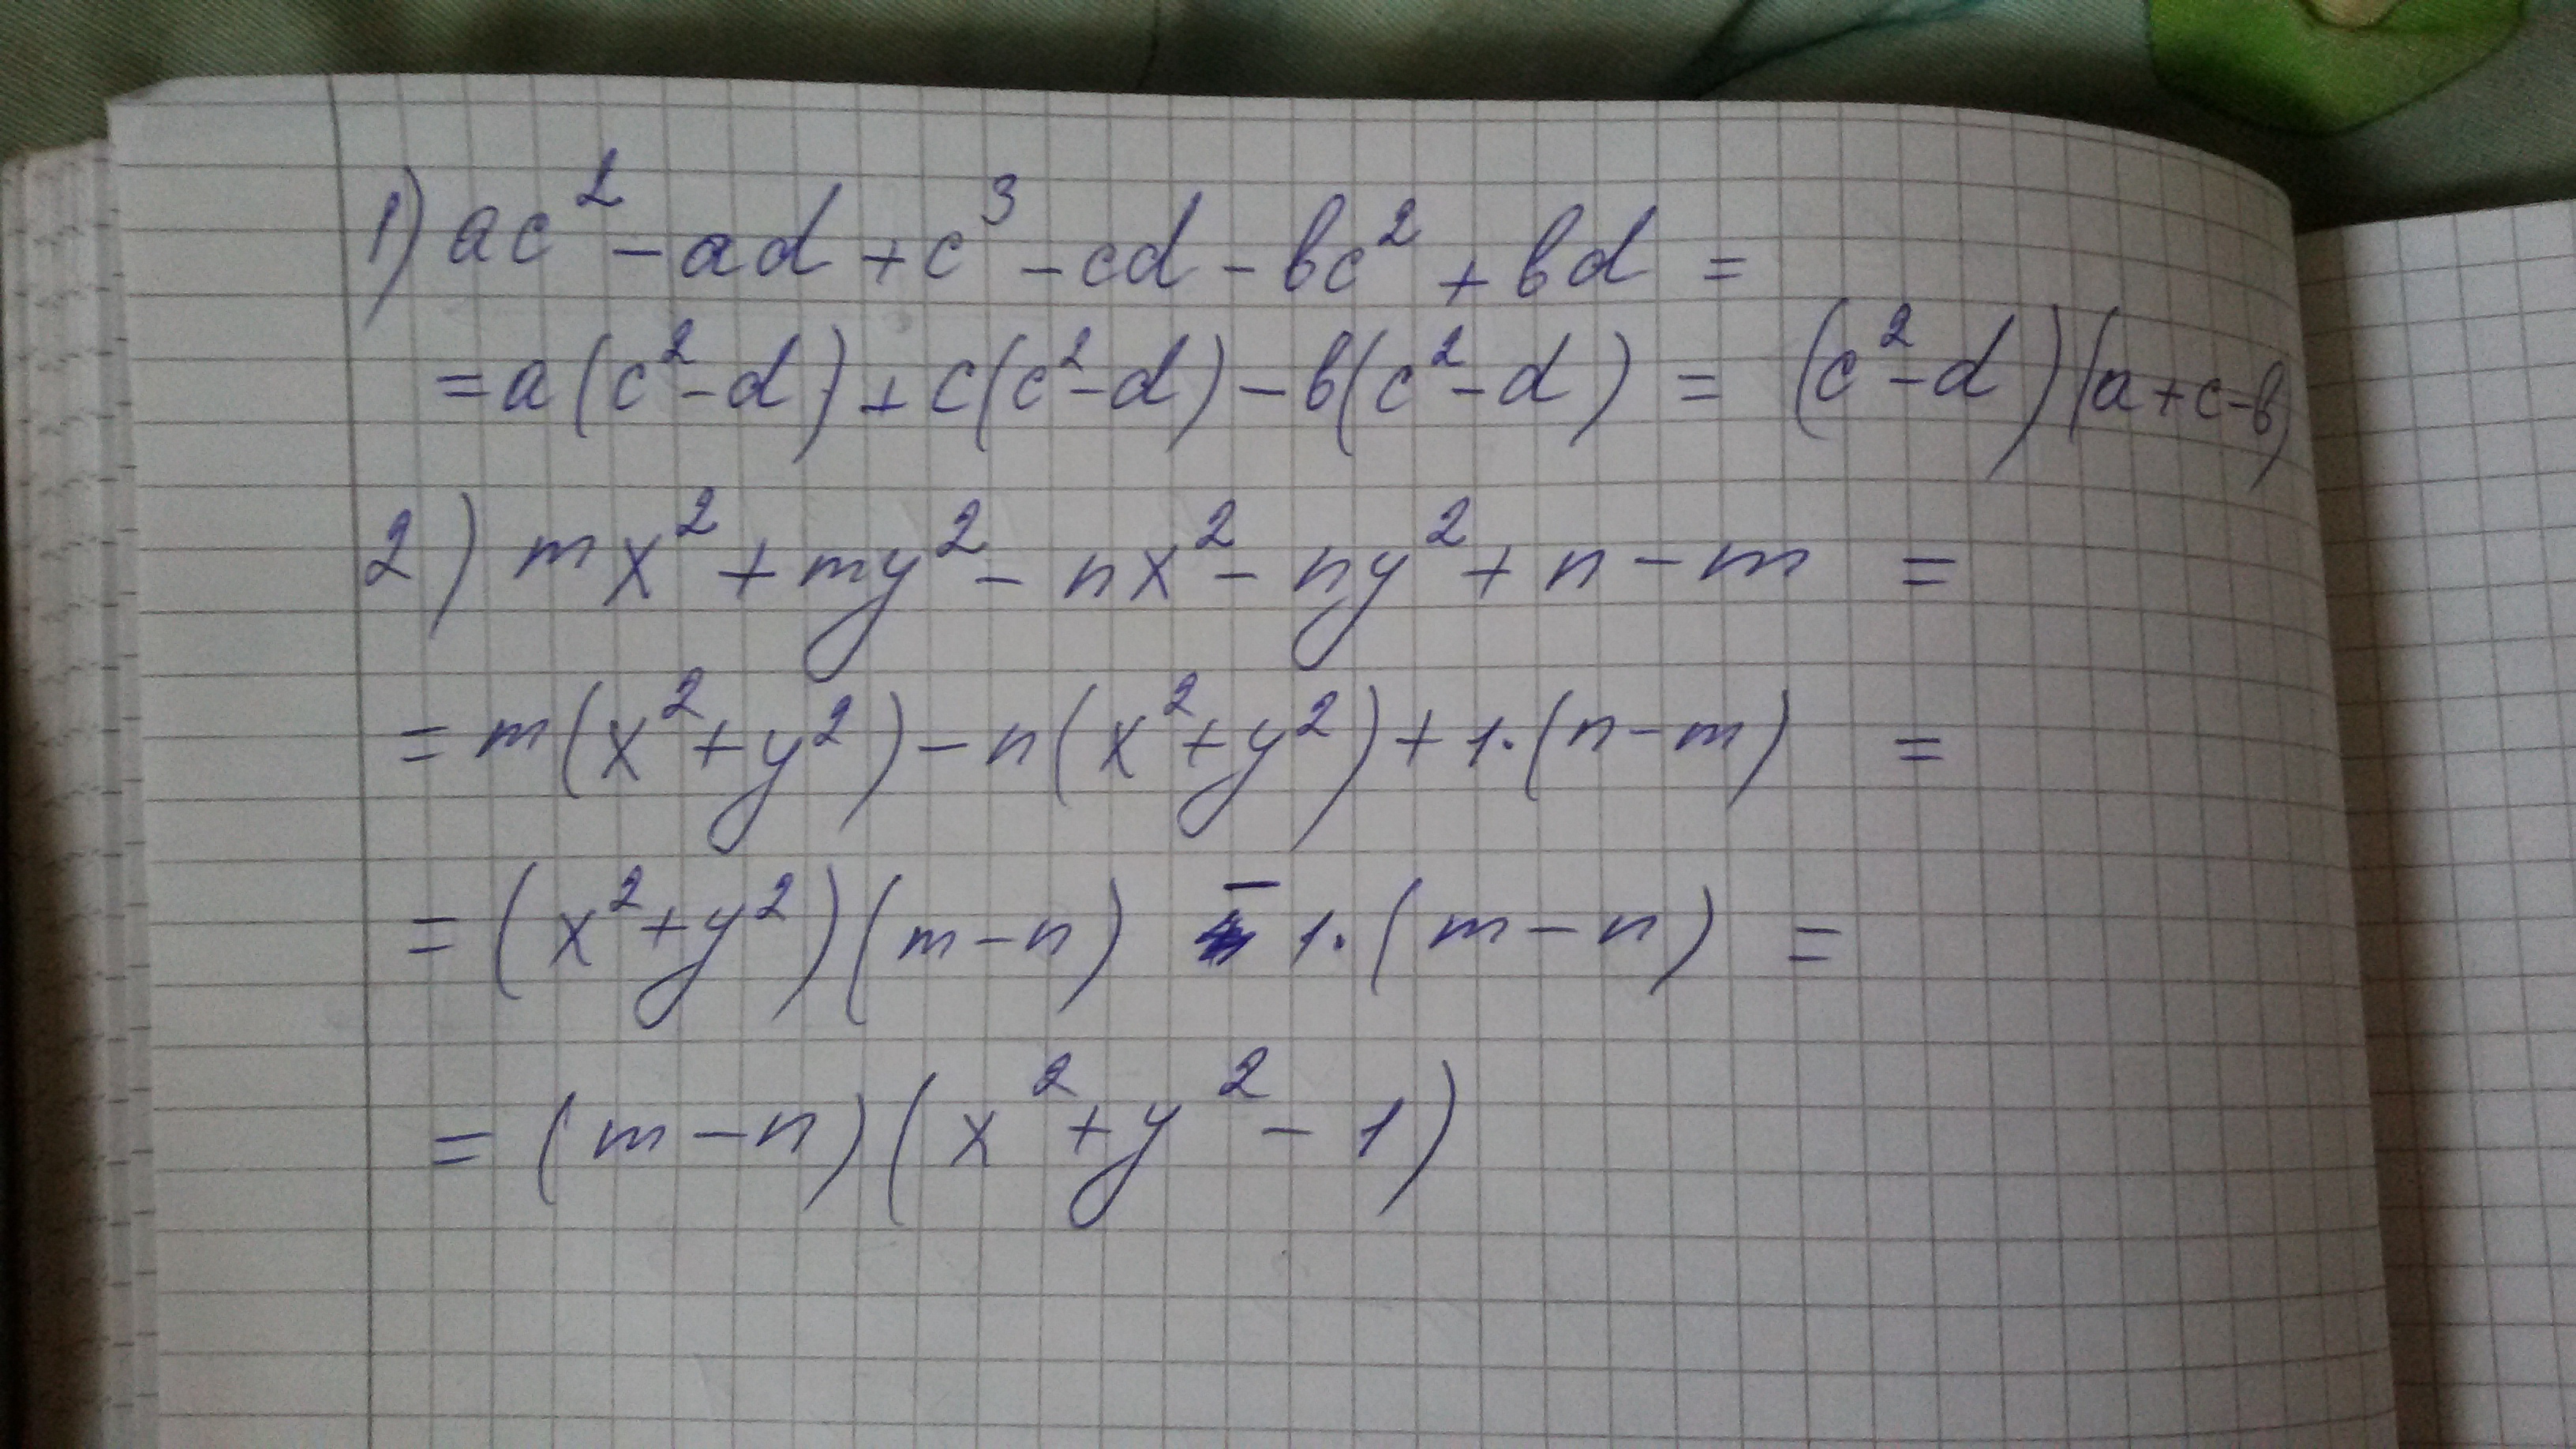 1) ac² - ad + c³ - cd - bc² + bd =
= a(c² - d) + c(c² - d) - b(c² - d) = (c² - d)(a + c - b)
2) mx² + my² - nx² - ny² + n - m =
= m(x² + y²) - n(x² + y²) + 1·(n - m) =
= (x² + y²)(m - n) - 1·(m - n) =
= (m - n)(x² + y² - 1)